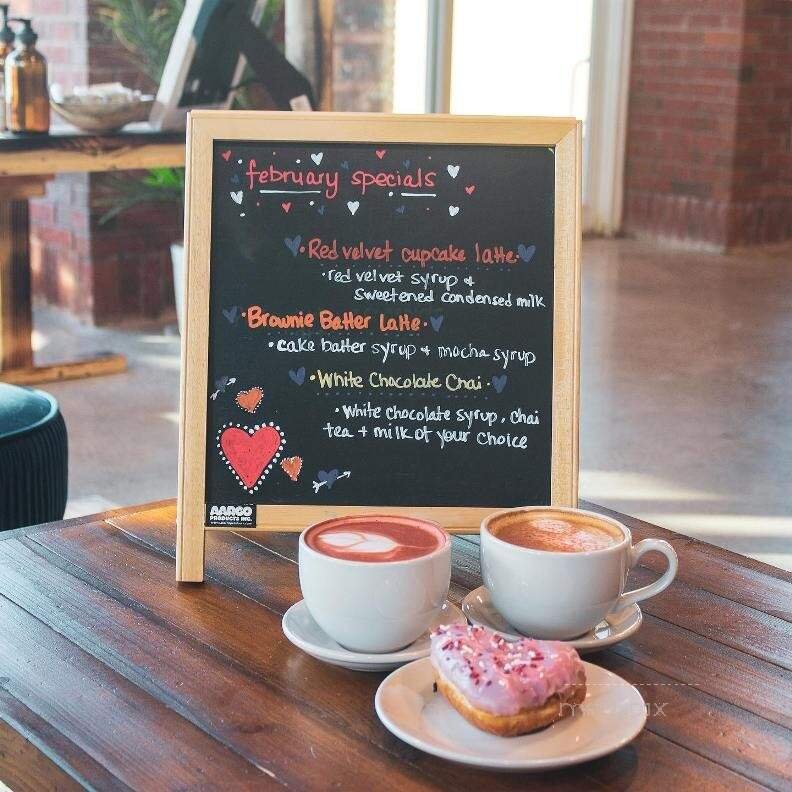 february specials
Red velvet cupcake latte
red velvet syrup +
sweetened condensed milk
Brownie Batter Latte
cake batter syrup + mocha syrup
White Chocolate Chai
White chocolate syrup, chai
tea + milk of your choice
AARCO
PRODUCTS INC.